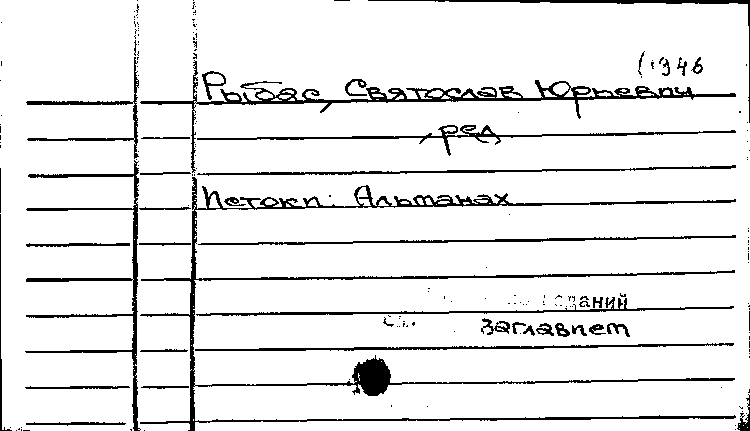 (1946
Рыбас, Святослав Юрьевич
, ред
Истоки: Альманах
заглавием